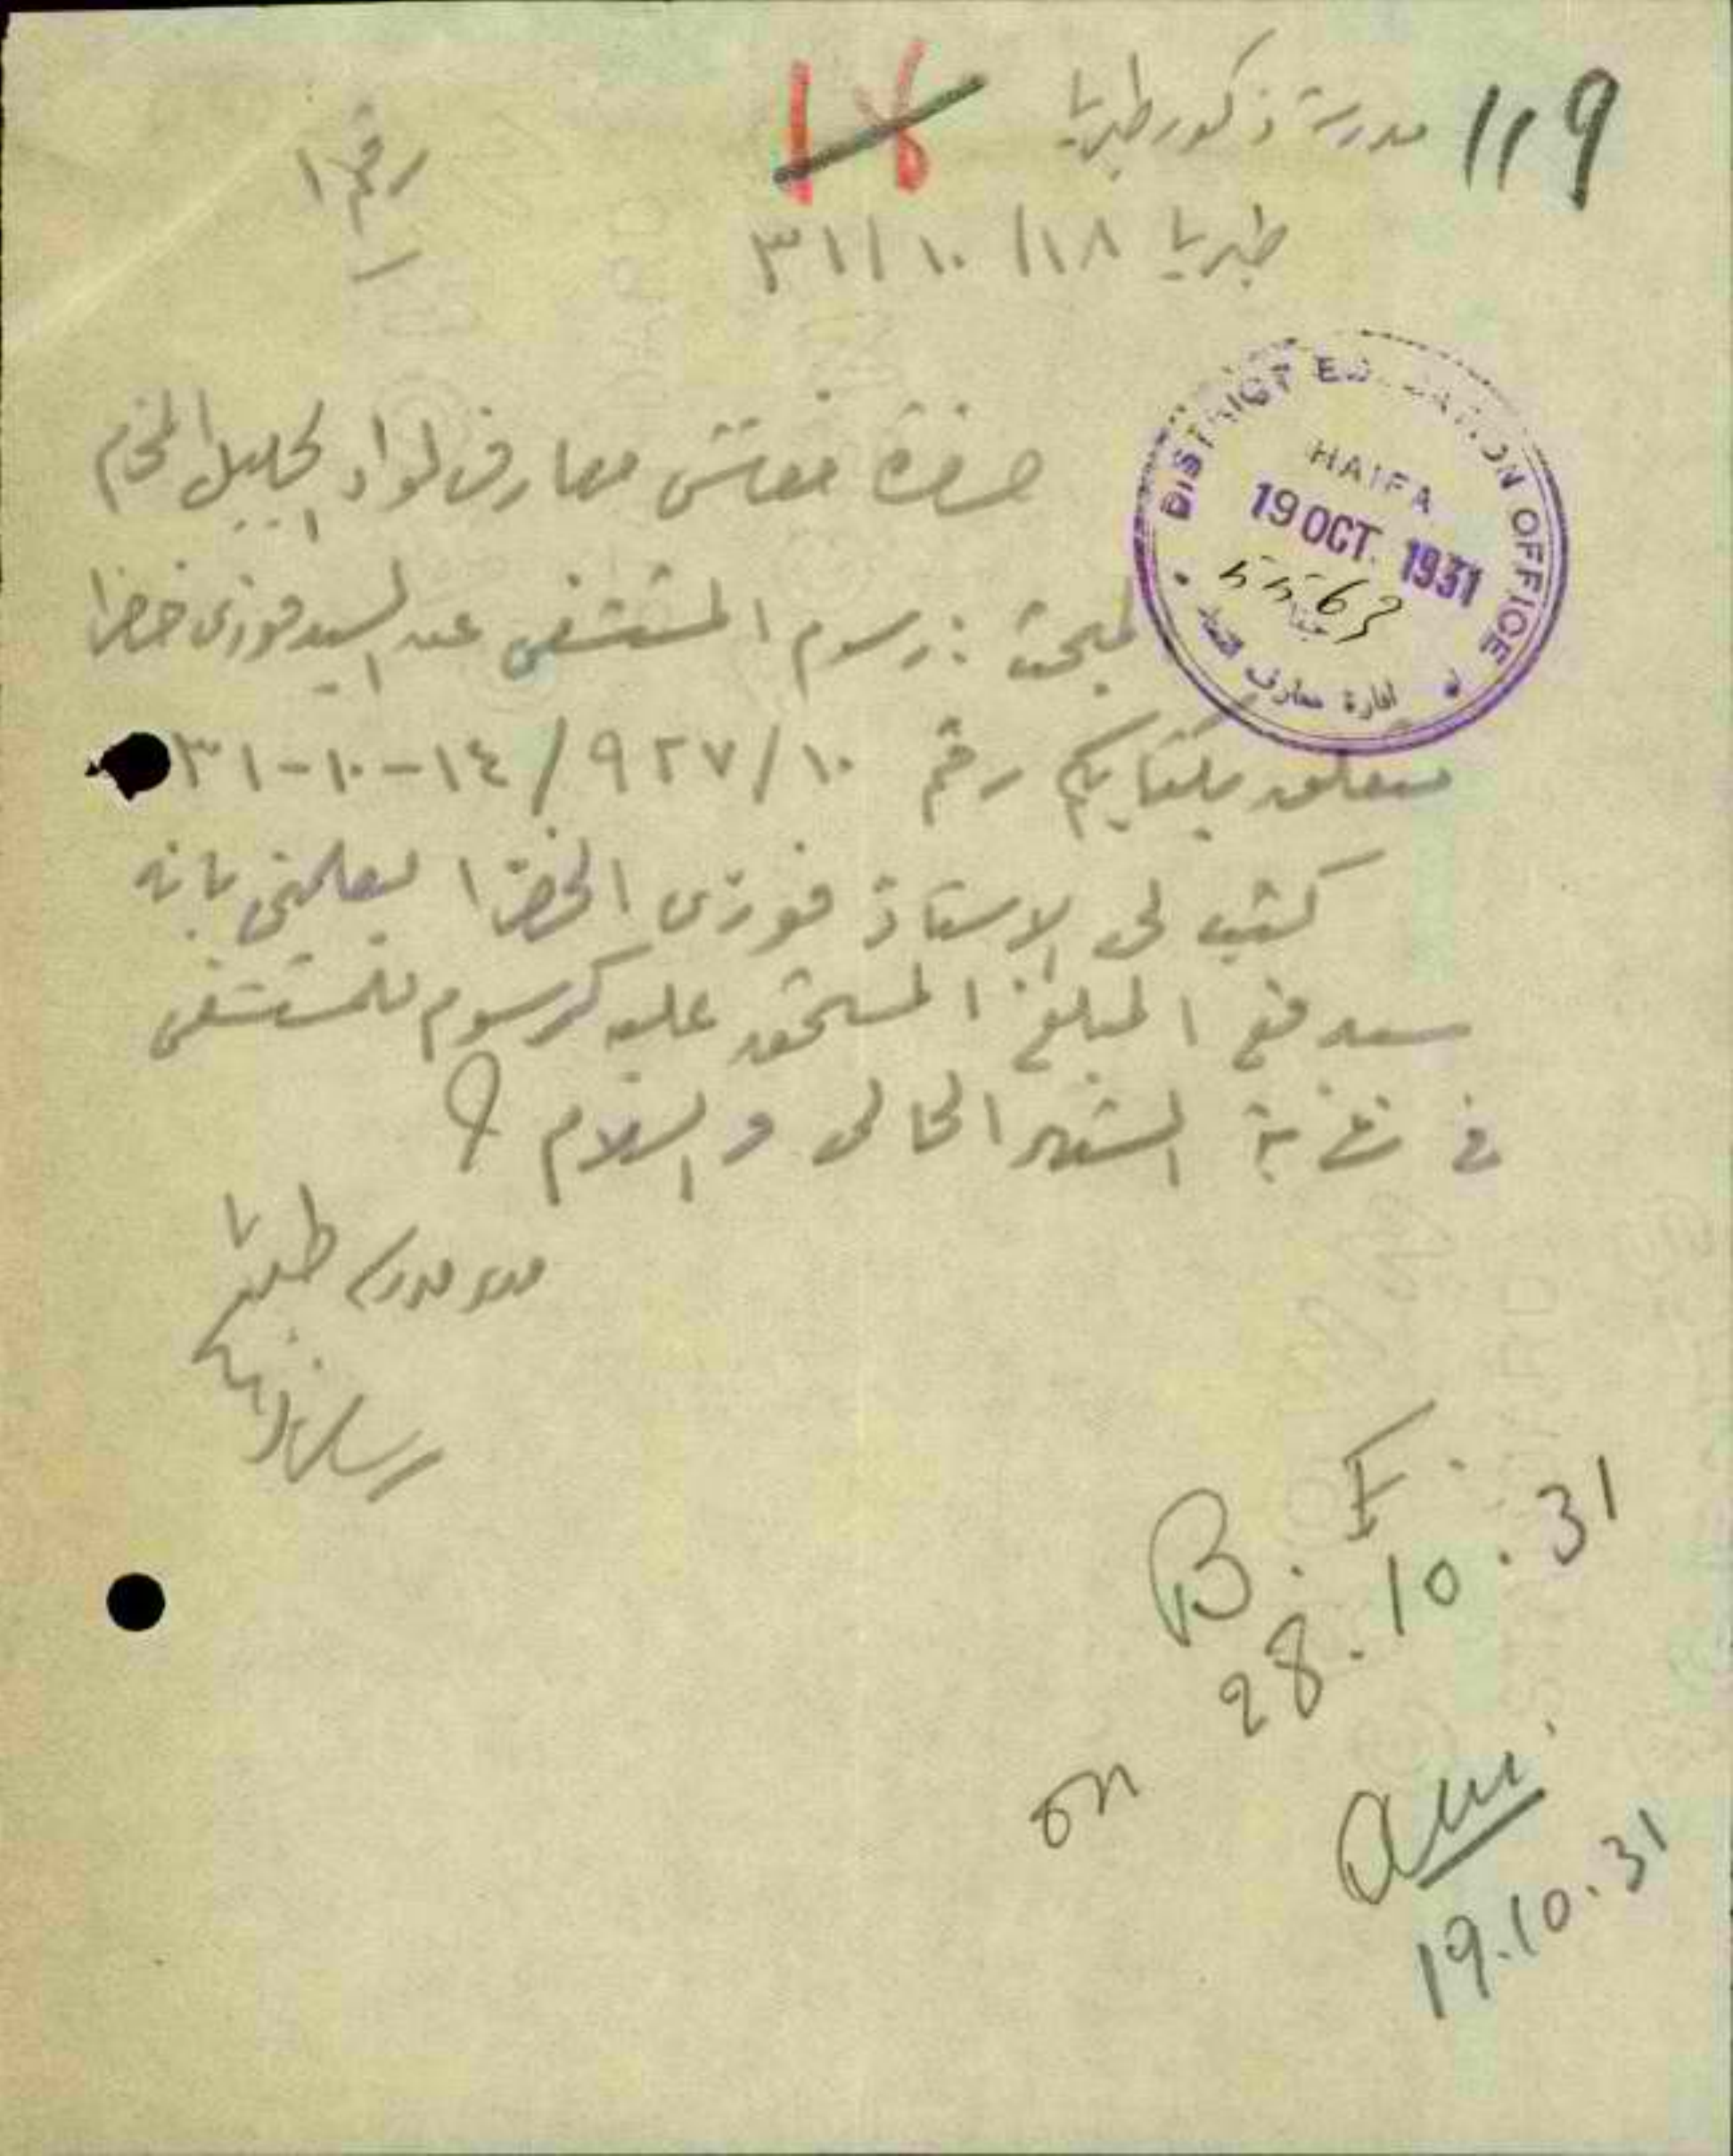 119 مدرسة ذكور طبريا
18
رقم ١
طبريا ١٨/ ١٠/ ٣١
DISTRICT EDUCATION OFFICE
HAIFA
19 OCT. 1931
5563
ادارة معارف
حضرة مفتش معارف لواء الجليل المحترم
المبحث : رسوم المستشفى عند السيد فوزي خضرا
متعلق بكتابكم رقم ١٠/ ٩٢٧/ ١٤-١٠-٣١
كتب لي الاستاذ فوزي الخضرا يعلمني بانه
سيدفع المبلغ المستحق عليه كرسوم للمستشفى
في نهاية الشهر الحالي والسلام
مدير مدرسة طبريا
B. F.
28.10.31
on
19.10.31